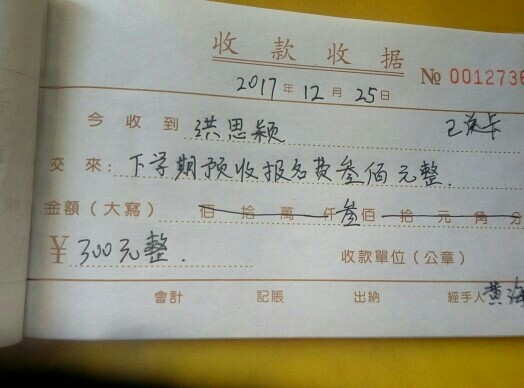 收款收据
2017年12月25日 № 0012736
今收到 洪思颖 已交卡
交來: 下学期预收报名费叁佰元整.
金額(大寫) 佰拾萬仟叁佰拾元角分
¥ 300元整. 收款單位(公章)
會計 記賬 出納 經手人 黄海